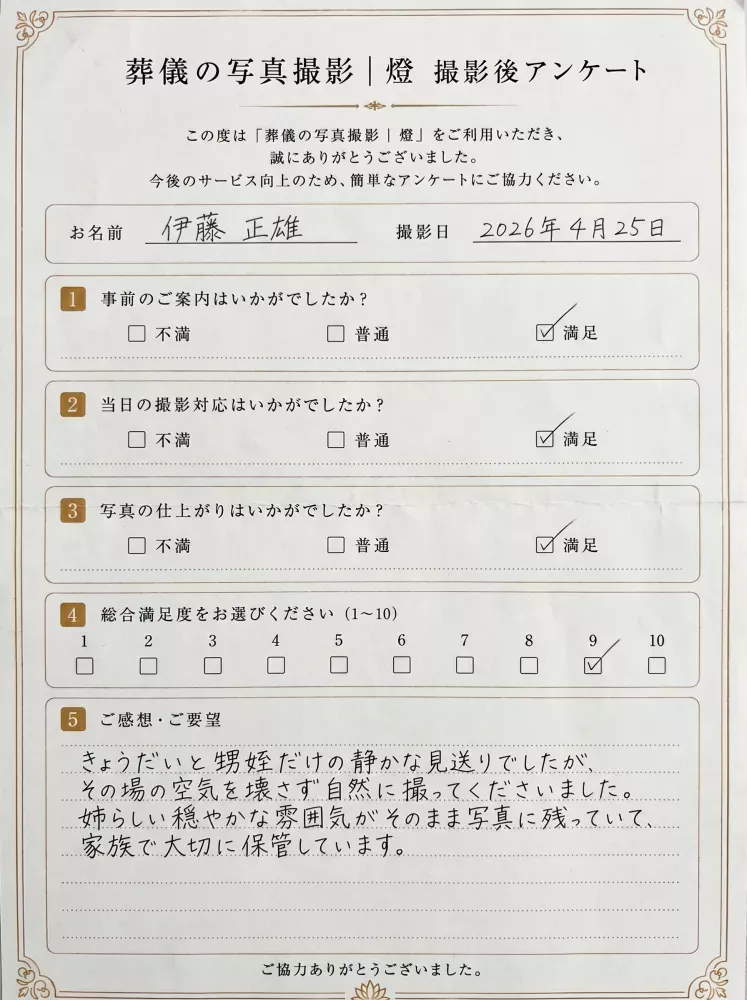 葬儀の写真撮影｜燈 撮影後アンケート
この度は「葬儀の写真撮影｜燈」をご利用いただき、
誠にありがとうございました。
今後のサービス向上のため、簡単なアンケートにご協力ください。
お名前 伊藤 正雄 撮影日 2026年4月25日
1 事前のご案内はいかがでしたか？
□ 不満 □ 普通 ☑ 満足
2 当日の撮影対応はいかがでしたか？
□ 不満 □ 普通 ☑ 満足
3 写真の仕上がりはいかがでしたか？
□ 不満 □ 普通 ☑ 満足
4 総合満足度をお選びください（1〜10）
1 2 3 4 5 6 7 8 9 10
□ □ □ □ □ □ □ □ ☑ □
5 ご感想・ご要望
きょうだいと甥姪だけの静かな見送りでしたが、
その場の空気を壊さず自然に撮ってくださいました。
姉らしい穏やかな雰囲気がそのまま写真に残っていて、
家族で大切に保管しています。
ご協力ありがとうございました。